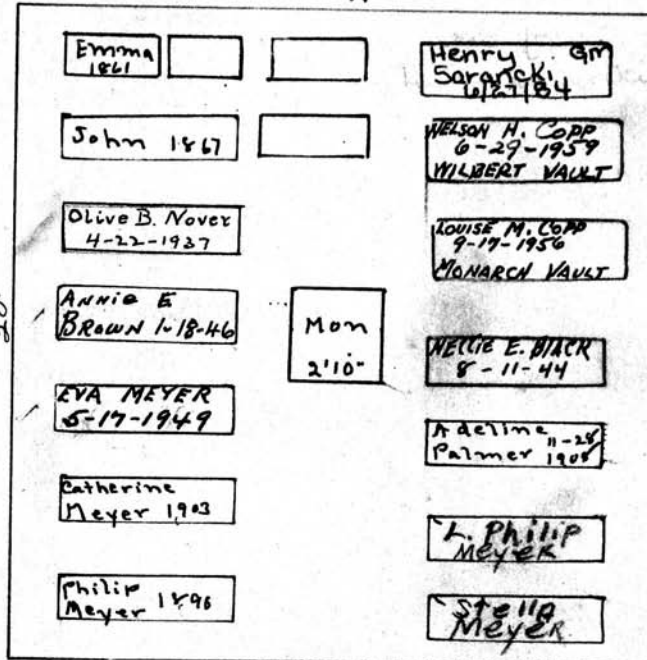 Emma
1861
John 1867
Olive B. Nover
4-22-1937
ANNIE E
BROWN 1-18-46
EVA MEYER
5-17-1949
Catherine
Meyer 1903
Philip
Meyer 1896
Mon
2'10"
Henry GM
Sarancki
6/27/84
NELSON H. COPP
6-29-1959
WILBERT VAULT
LOUISE M. COPP
9-17-1956
MONARCH VAULT
NELLIE E. BLACK
8-11-44
Adeline 11-28
Palmer 1908
L. Philip
Meyer
Stella
Meyer